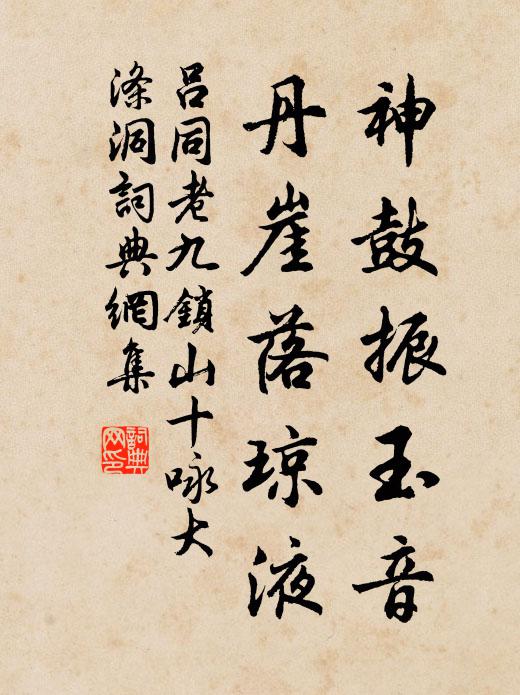 神鼓振玉音
丹崖落琼液
吕同老九鎖山十咏大
涤洞詞典網集
詞典网印